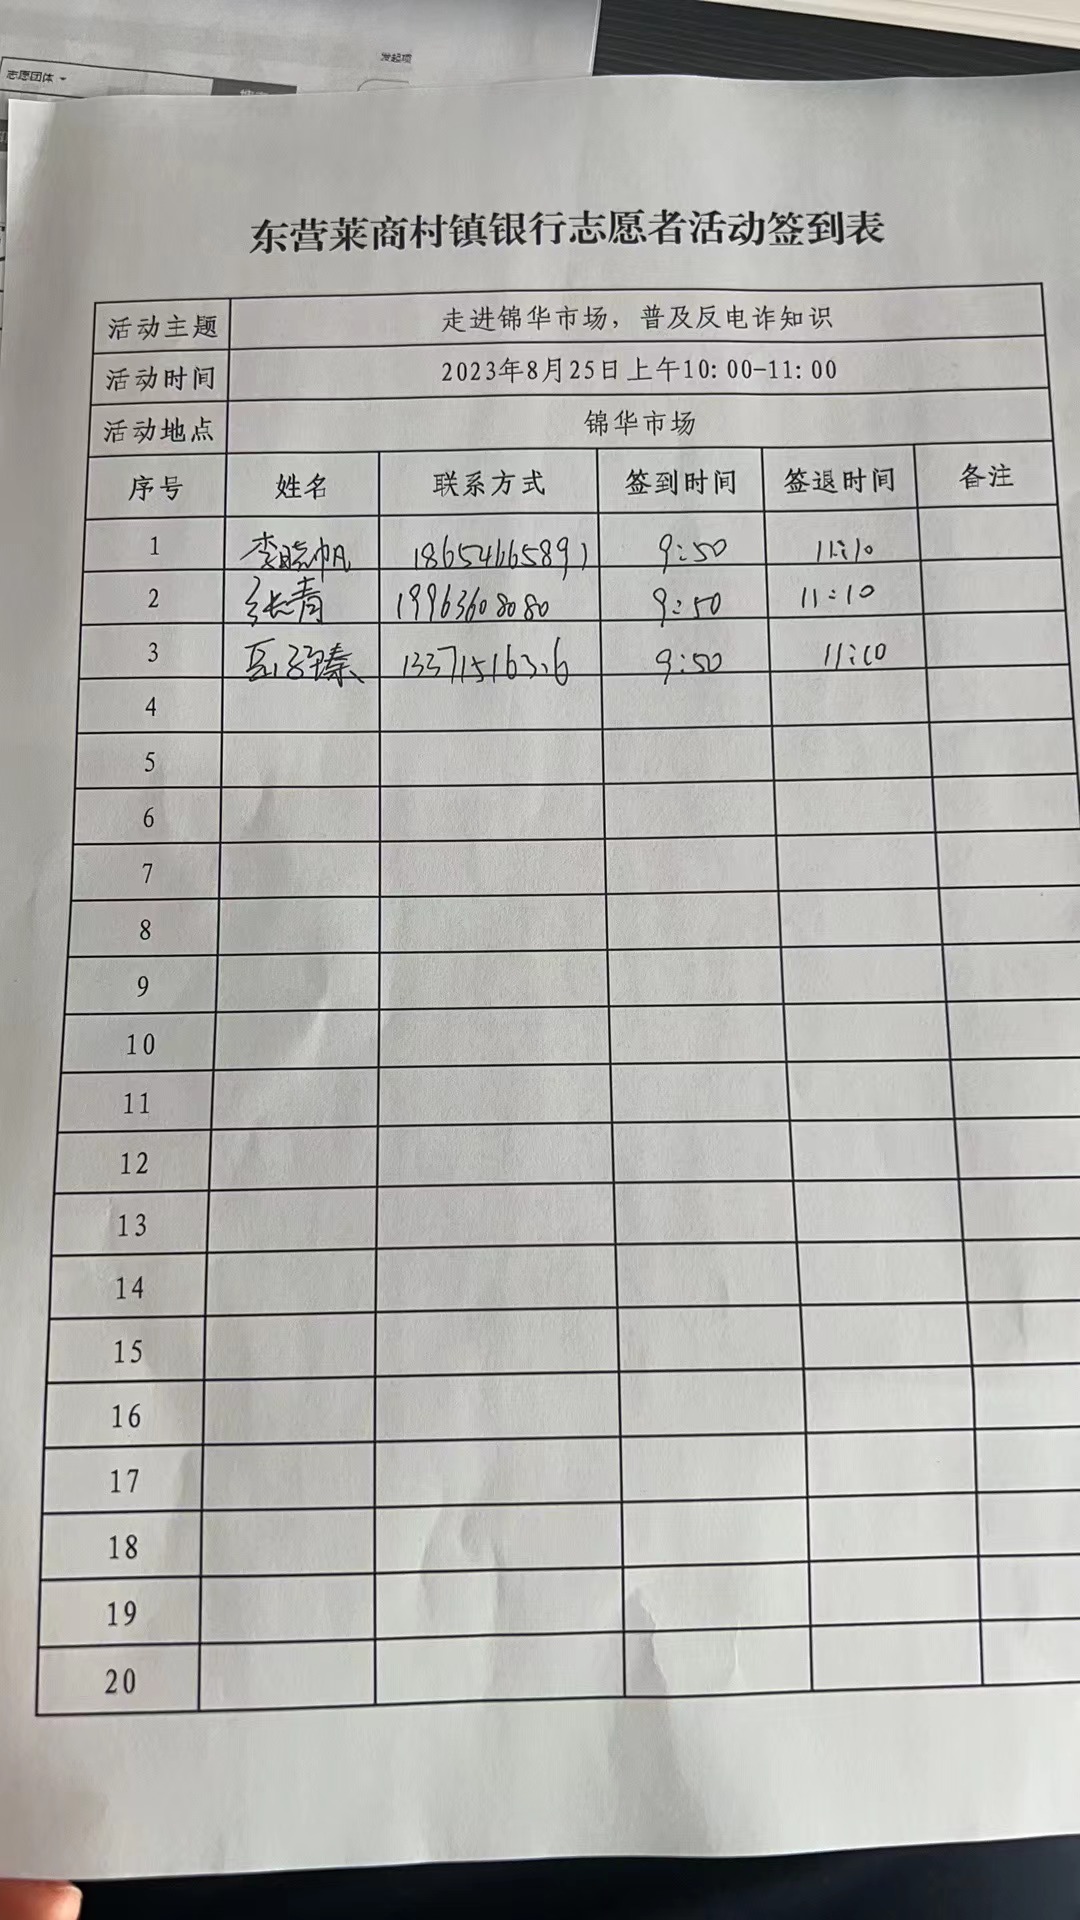 志愿团体
发起项
东营莱商村镇银行志愿者活动签到表
活动主题 走进锦华市场，普及反电诈知识
活动时间 2023年8月25日上午10:00-11:00
活动地点 锦华市场
序号 姓名 联系方式 签到时间 签退时间 备注
1 李晓帆 18654665891 9:50 11:10
2 张青 19963608080 9:50 11:10
3 9:50 11:10
4
5
6
7
8
9
10
11
12
13
14
15
16
17
18
19
20